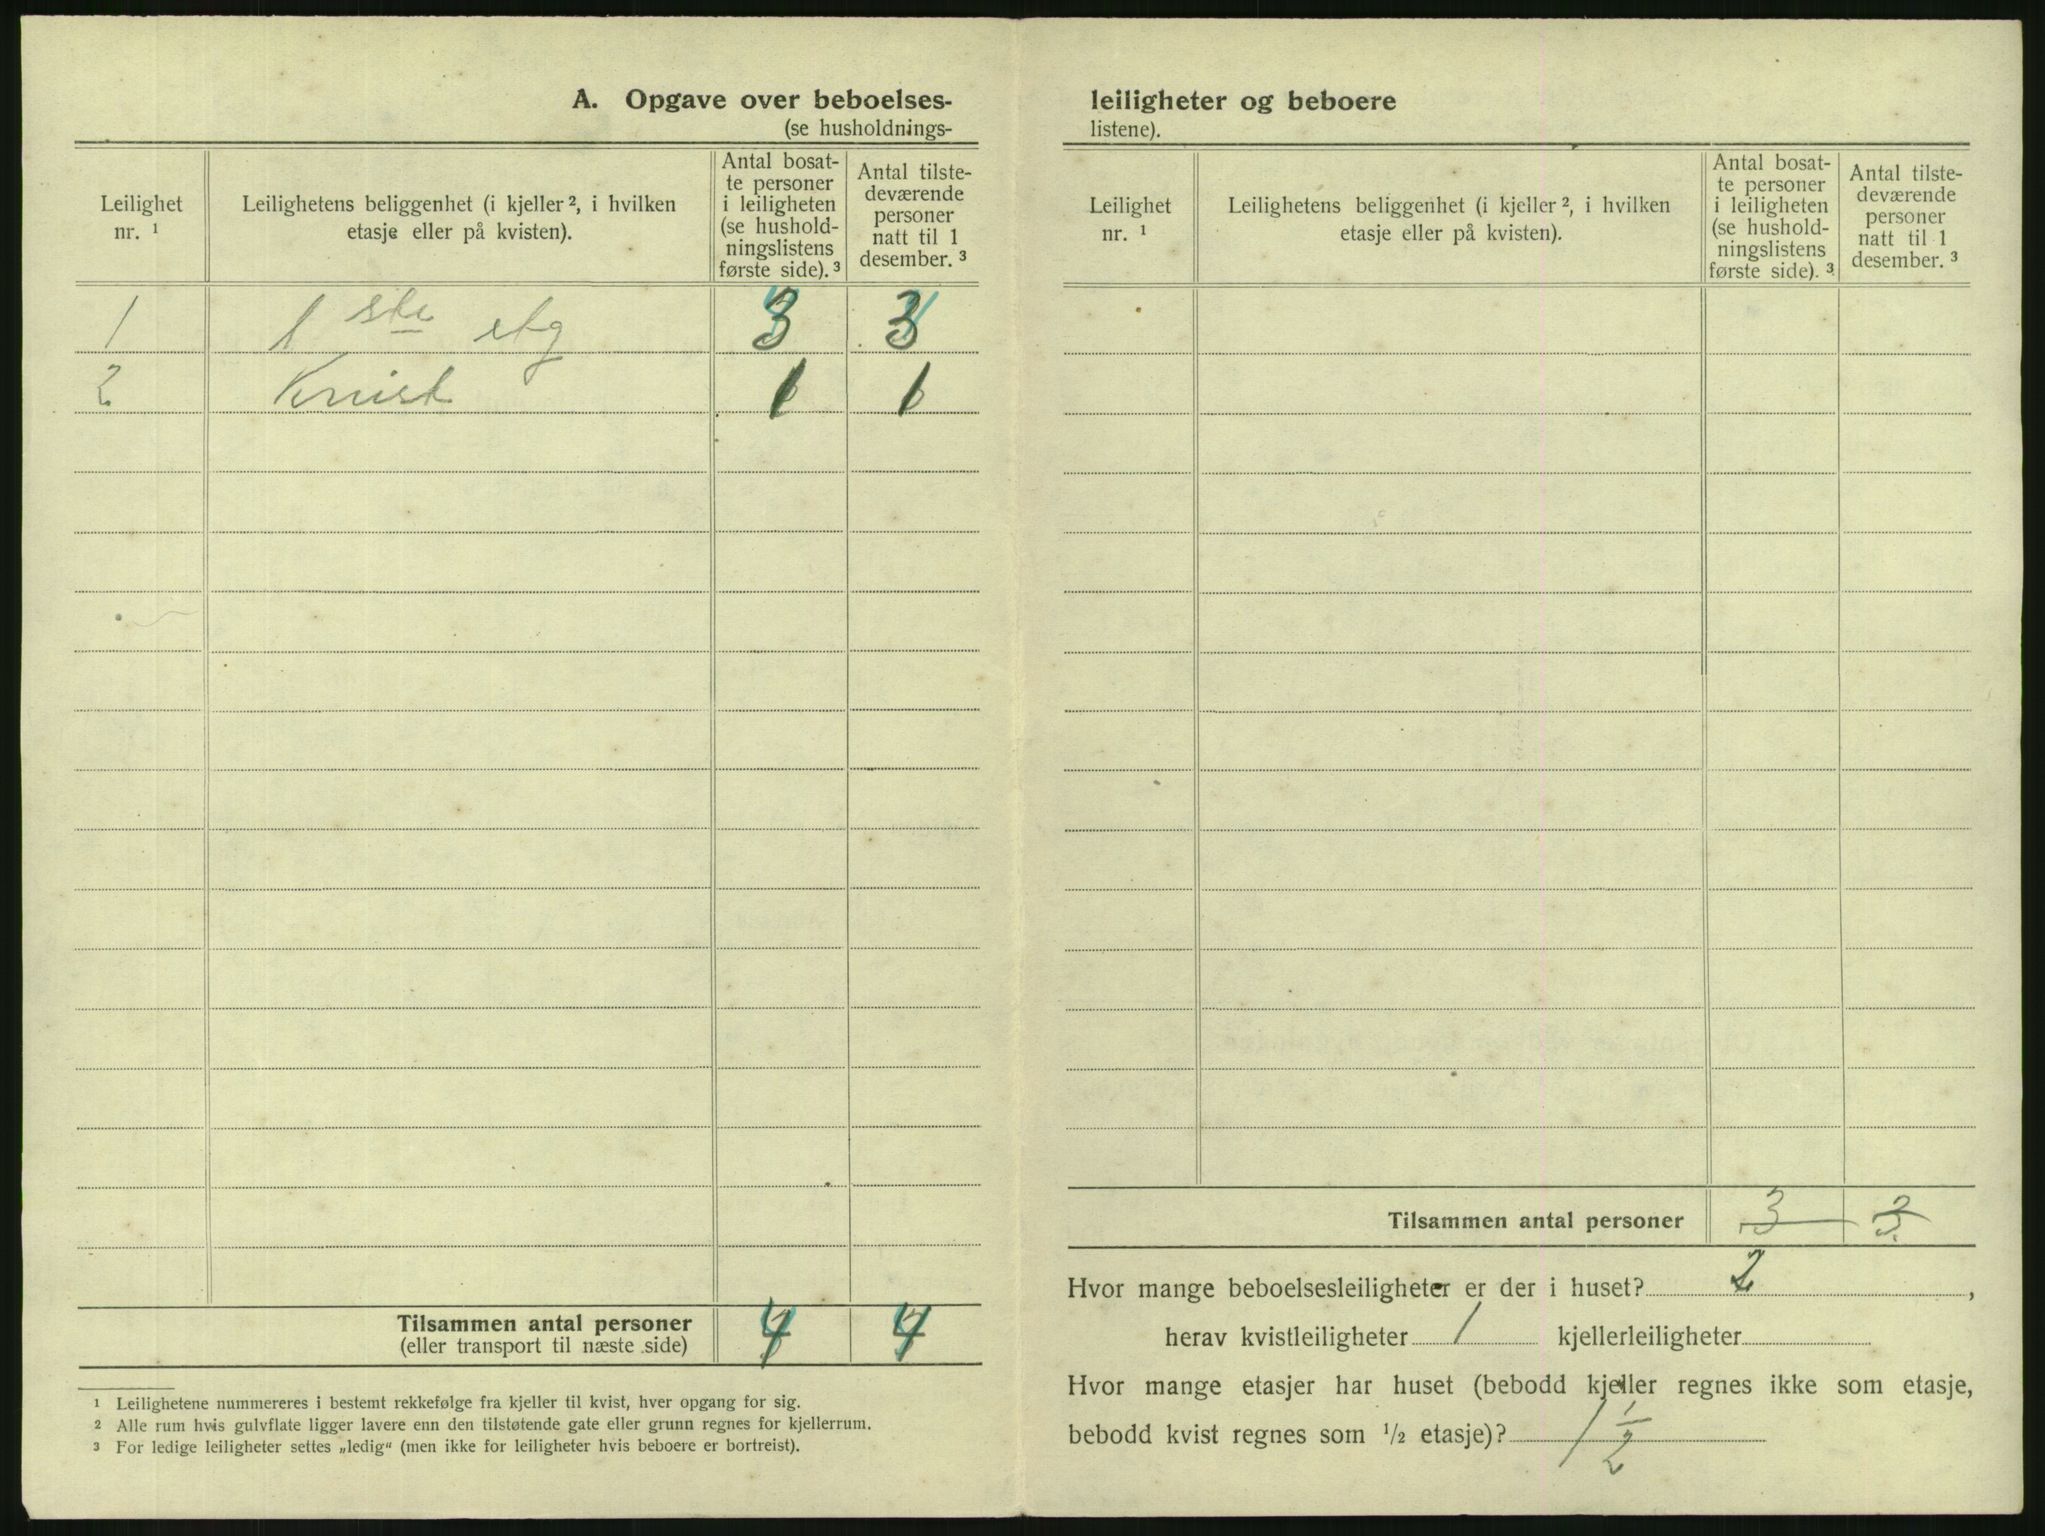 A. Opgave over beboelses-
(se husholdnings-
Leilighet nr. ¹
Leilighetens beliggenhet (i kjeller ², i hvilken etasje eller på kvisten).
Antal bosat-
te personer
i leiligheten
(se hushold-
ningslistens
første side). ³
Antal tilste-
deværende
personer
natt til 1
desember. ³
1 1 ste etg 3 3
2 Kvist 1 1
Tilsammen antal personer 4 4
(eller transport til næste side)
¹ Leilighetene nummereres i bestemt rekkefølge fra kjeller til kvist, hver opgang for sig.
² Alle rum hvis gulvflate ligger lavere enn den tilstøtende gate eller grunn regnes for kjellerrum.
³ For ledige leiligheter settes „ledig“ (men ikke for leiligheter hvis beboere er bortreist).
leiligheter og beboere
listene).
Leilighet nr. ¹
Leilighetens beliggenhet (i kjeller ², i hvilken etasje eller på kvisten).
Antal bosat-
te personer
i leiligheten
(se hushold-
ningslistens
første side). ³
Antal tilste-
deværende
personer
natt til 1
desember. ³
Tilsammen antal personer 3 3
Hvor mange beboelsesleiligheter er der i huset? 2 ,
herav kvistleiligheter 1 kjellerleiligheter
Hvor mange etasjer har huset (bebodd kjeller regnes ikke som etasje,
bebodd kvist regnes som 1/2 etasje)? 1 1/2